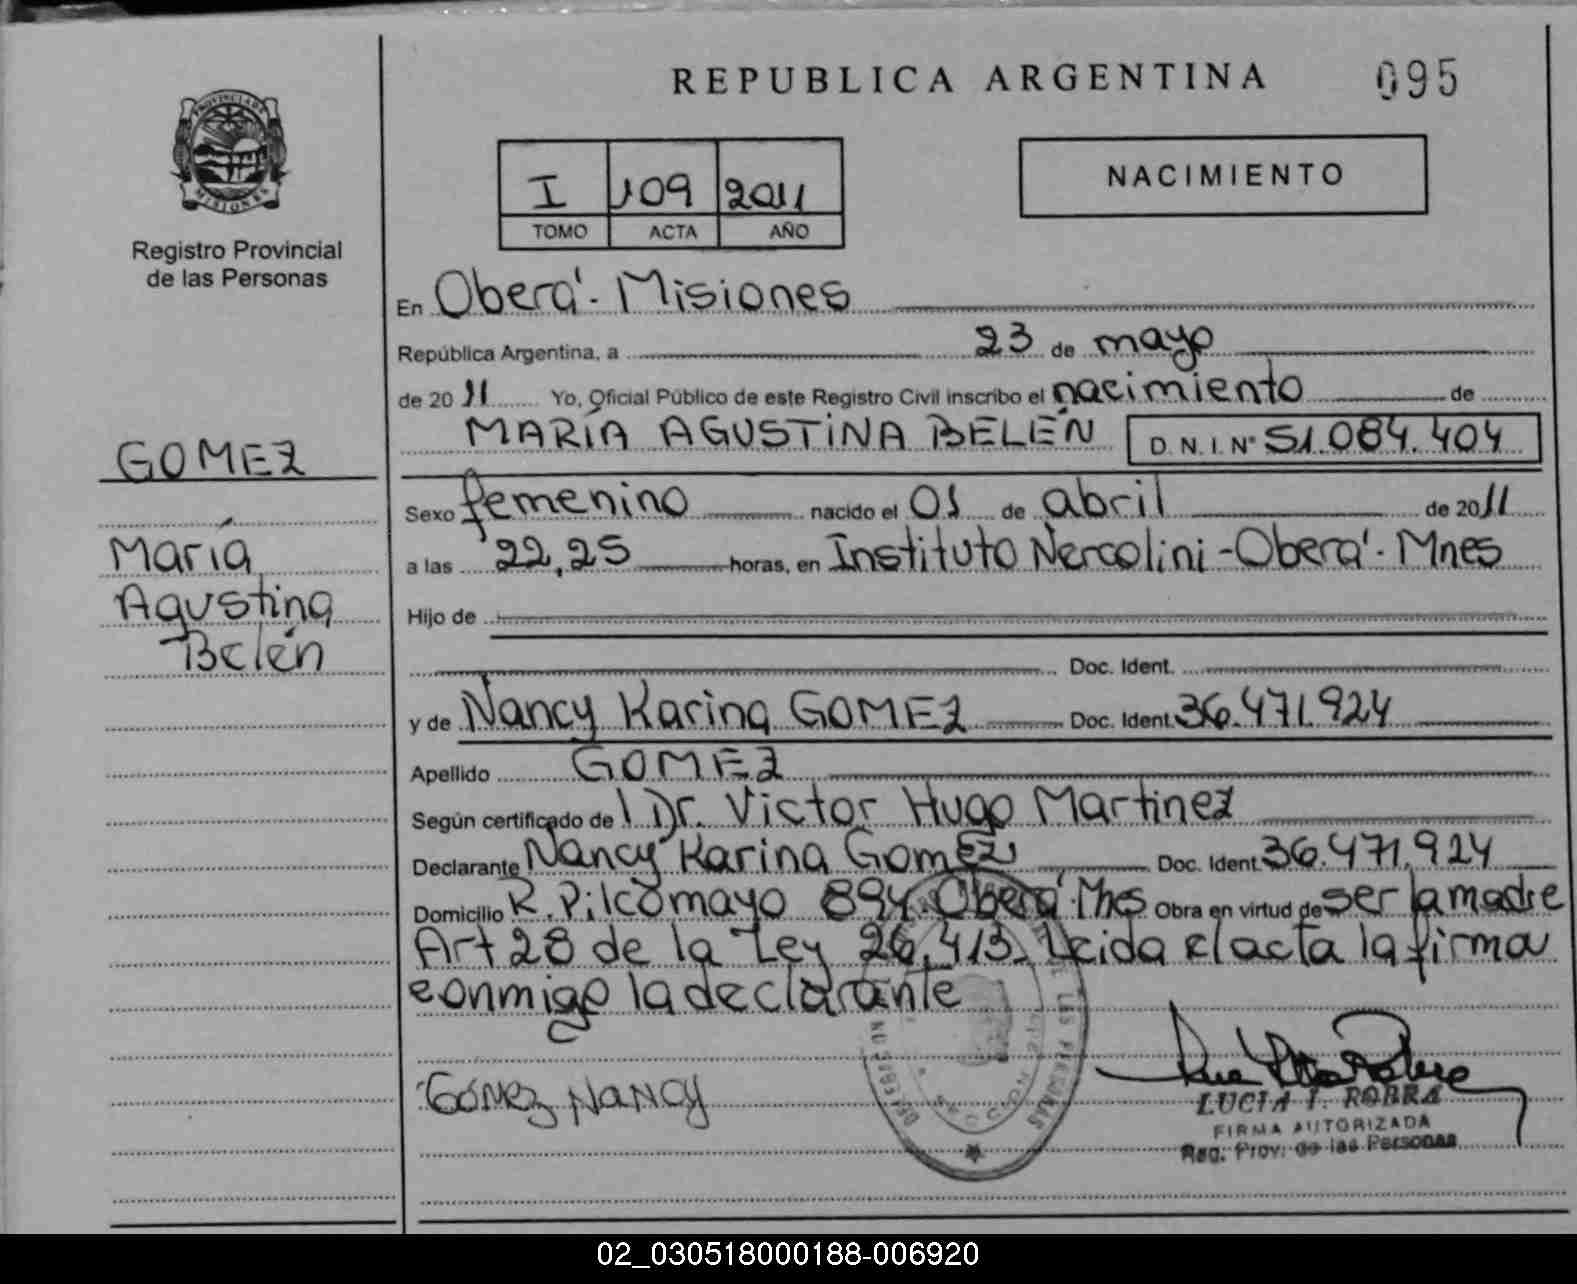 REPUBLICA ARGENTINA 095
PROVINCIA DE MISIONES
Registro Provincial
de las Personas
I 109 2011
TOMO ACTA AÑO
NACIMIENTO
En Oberá - Misiones
República Argentina, a 23 de mayo
de 2011 Yo, Oficial Público de este Registro Civil inscribo el nacimiento de
MARÍA AGUSTINA BELÉN D.N.I. Nº 51.084.404
GOMEZ
María
Agustina
Belén
Sexo femenino nacido el 01 de abril de 2011
a las 22,25 horas, en Instituto Nercolini - Oberá - Mnes
Hijo de
Doc. Ident.
y de Nancy Karina GOMEZ Doc. Ident. 36.471.924
Apellido GOMEZ
Según certificado de l Dr. Victor Hugo Martinez
Declarante Nancy Karina Gomez Doc. Ident. 36.471.924
Domicilio R. Pilcomayo 894. Oberá Mnes Obra en virtud de ser la madre
Art 28 de la Ley 26.413. Leida el acta la firma
conmigo la declarante
Gómez Nancy
LUCIA I. ROBRA
FIRMA AUTORIZADA
Reg. Prov. de las Personas
DE LAS PERSONAS
02_030518000188-006920